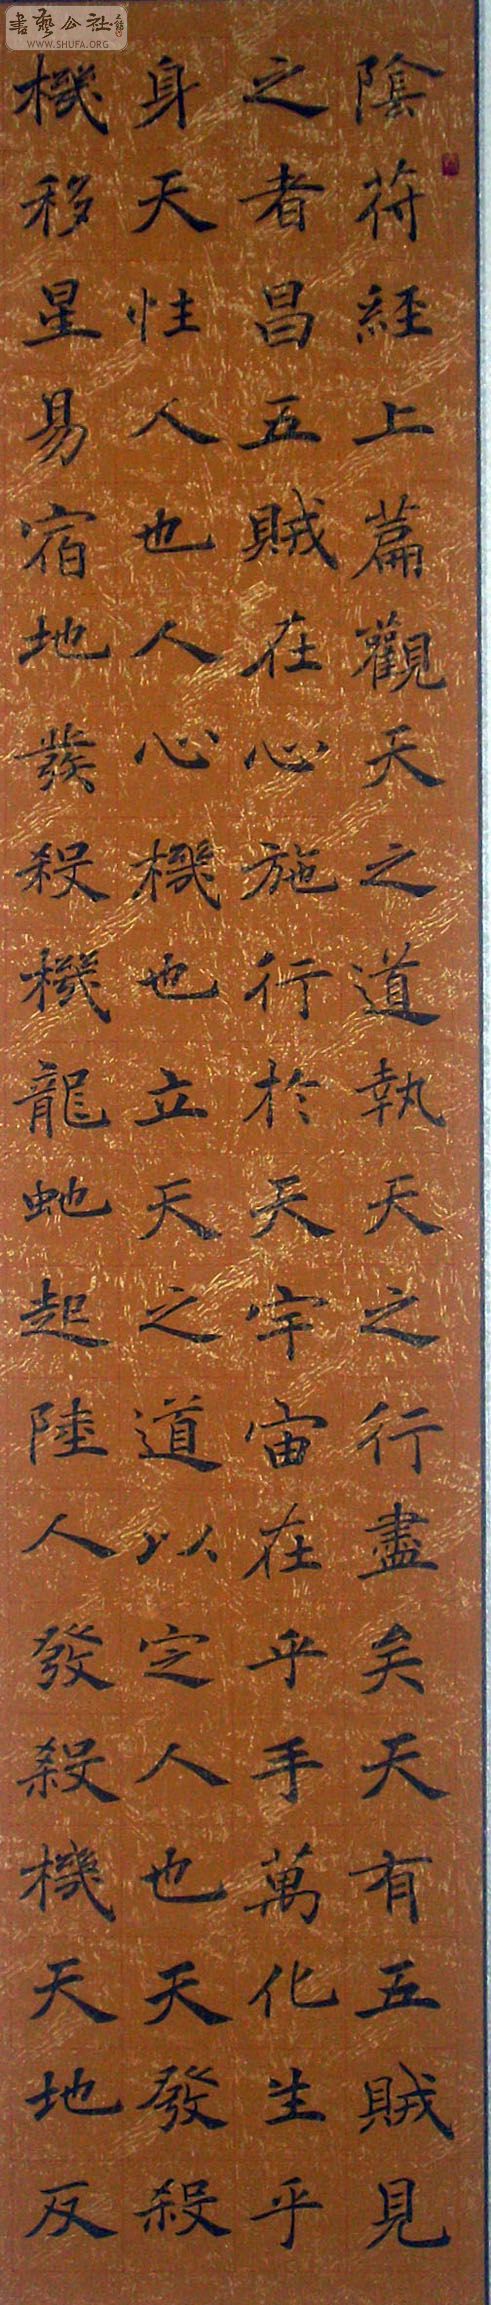 陰符經上篇觀天之道執天之行盡矣天有五賊見
之者昌五賊在心施行於天宇宙在乎手萬化生乎
身天性人也人心機也立天之道以定人也天發殺
機移星易宿地發殺機龍虵起陸人發殺機天地反
書藝公社
WWW.SHUFA.ORG